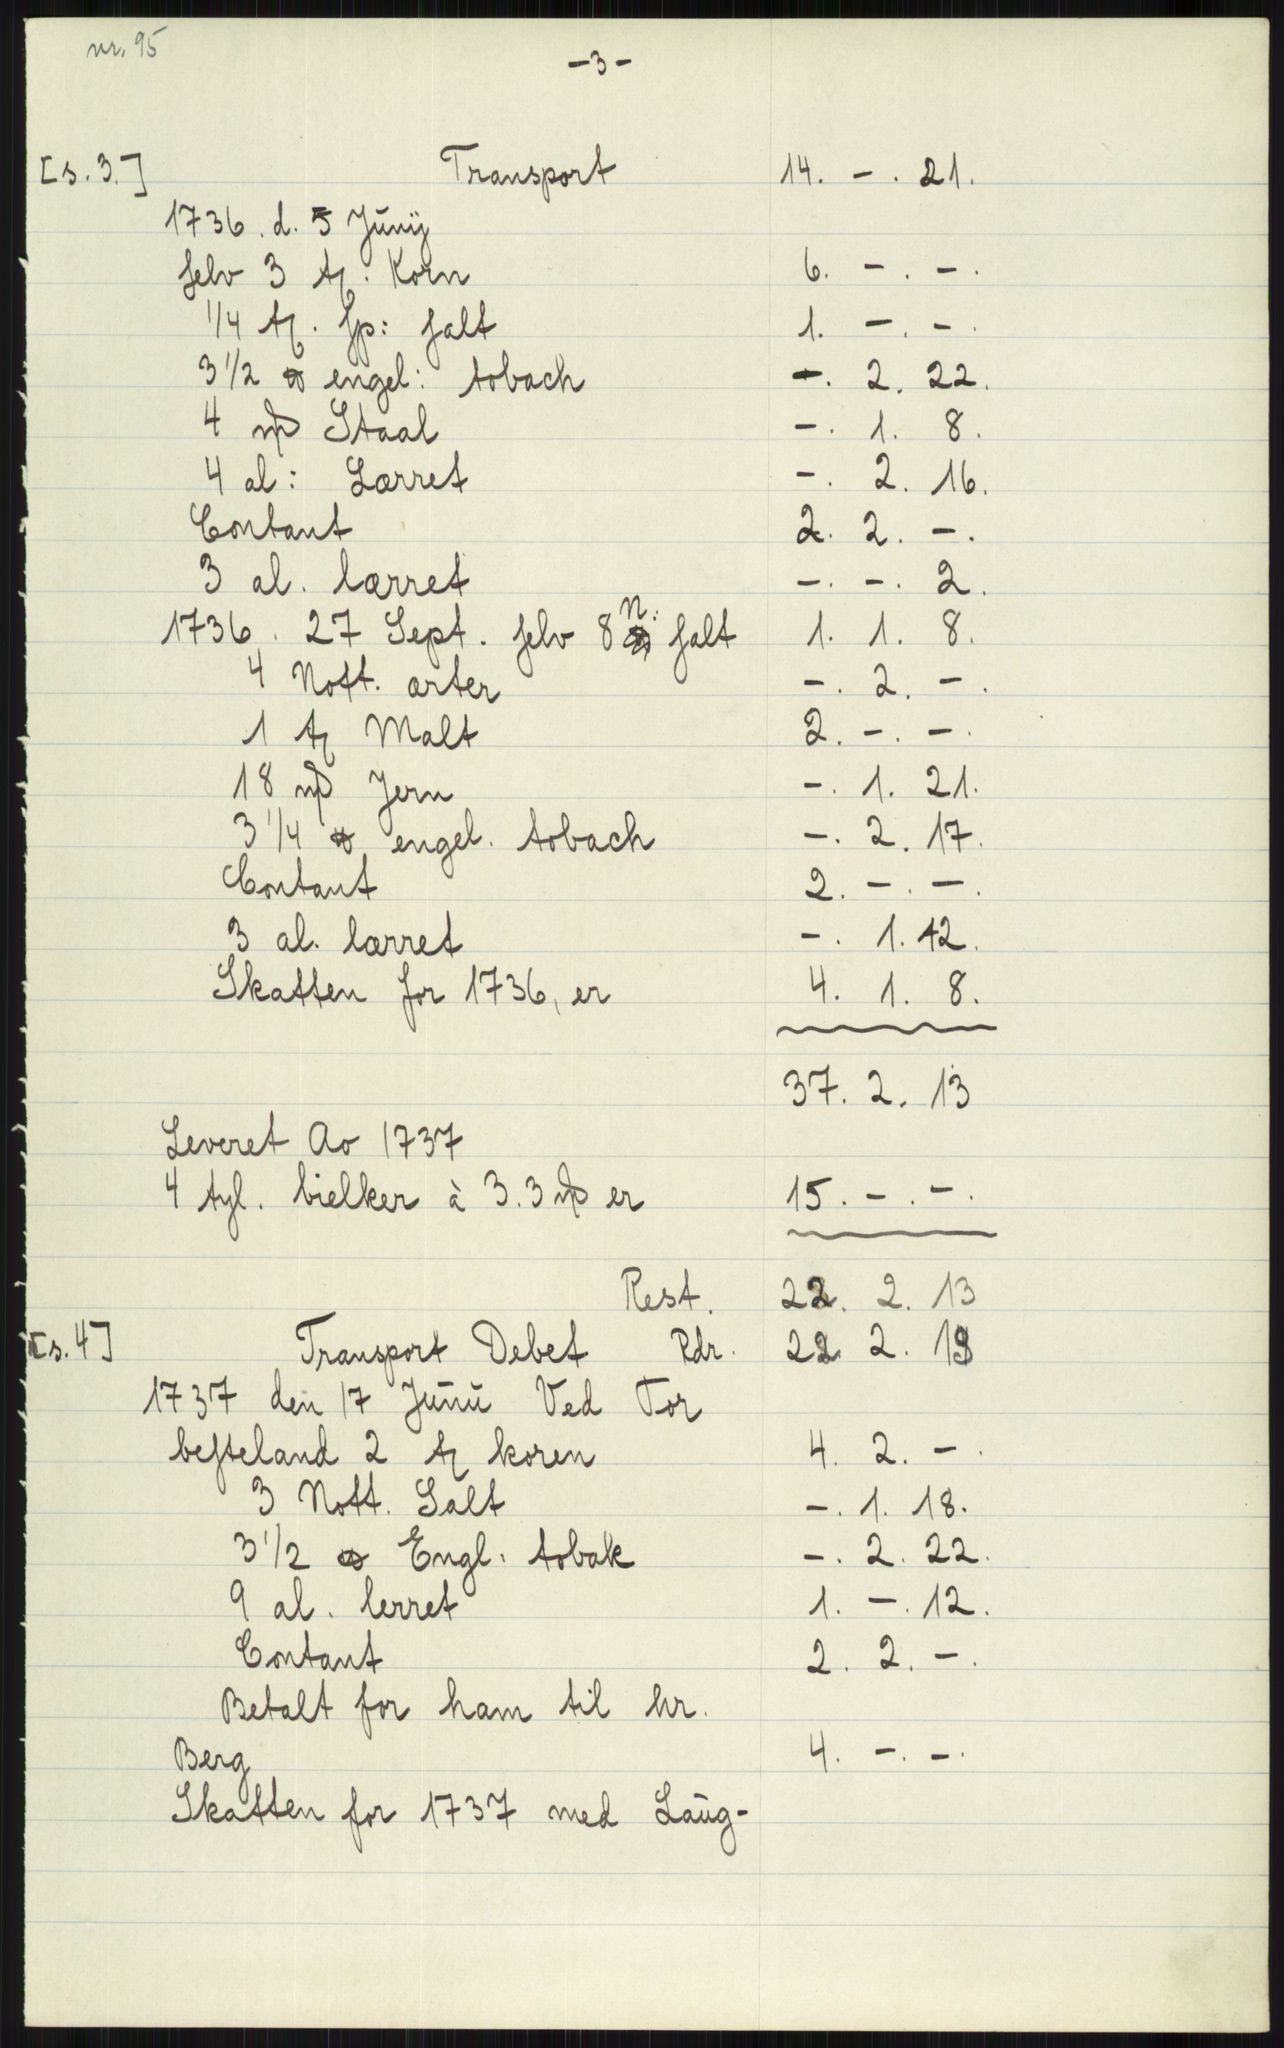 nr. 95
-3-
[s. 3.] Transport 14. -. 21.
1736. d. 5 Junij
selv 3 tø. Korn 6. -. -.
1/4 tø. sp: salt 1. -. -.
3 1/2 ℔ engel: tobach -. 2. 22.
4 mp Staal -. 1. 8.
4 al: Lærret -. 2. 16.
Contant 2. 2. -.
3 al. lærret -. -. 2.
1736. 27 Sept. selv 8 N: salt 1. 1. 8.
4 Nott. ærter -. 2. -.
1 tø Malt 2. -. -.
18 mp Jern -. 1. 21.
3 1/4 ℔ engel. tobach -. 2. 17.
Contant 2. -. -.
3 al. lærret -. 1. 12.
Skatten for 1736, er 4. 1. 8.
37. 2. 13
Leveret Ao 1737
4 tyl. bielker à 3.3 mp er 15. -. -.
Rest. 22. 2. 13
[s. 4] Transport Debet Rdr. 22 2. 13
1737 den 17 Junii Ved Tor
besteland 2 tø koren 4. 2. -.
3 Nott. Salt -. 1. 18.
3 1/2 ℔ Engl. tobak -. 2. 22.
9 al. lerret 1. -. 12.
Contant 2. 2. -.
Betalt for ham til hr.
Berg 4. -. -.
Skatten for 1737 med Laug-